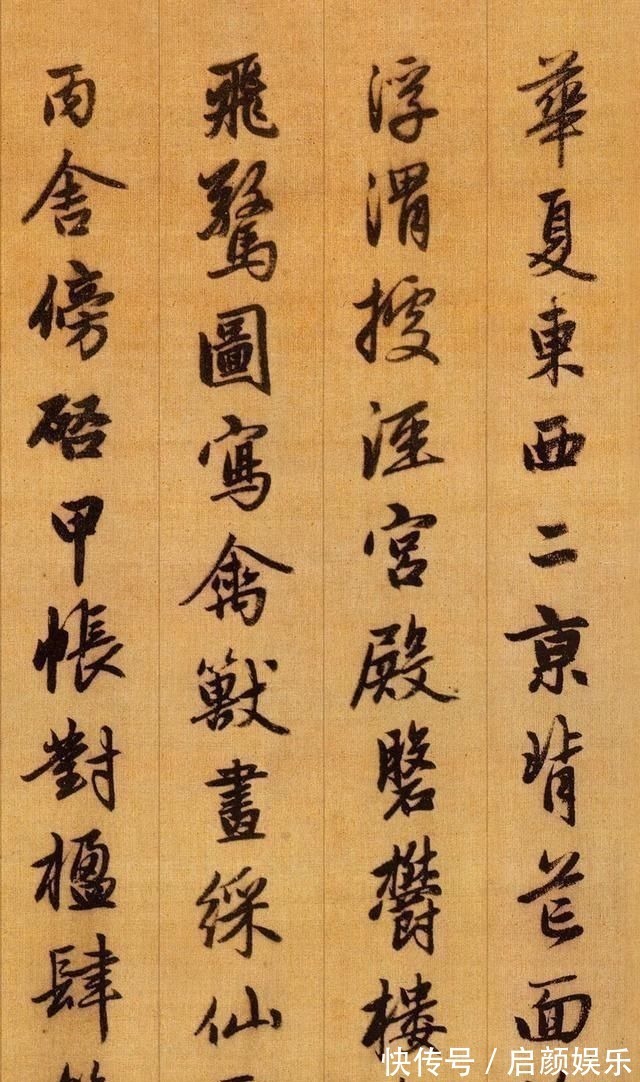 華夏東西二京背芒面
浮渭據涇宮殿磐欝樓
飛驚圖寫禽獸畫綵仙
丙舍傍啓甲帳對楹肆
快传号 / 启颜娱乐